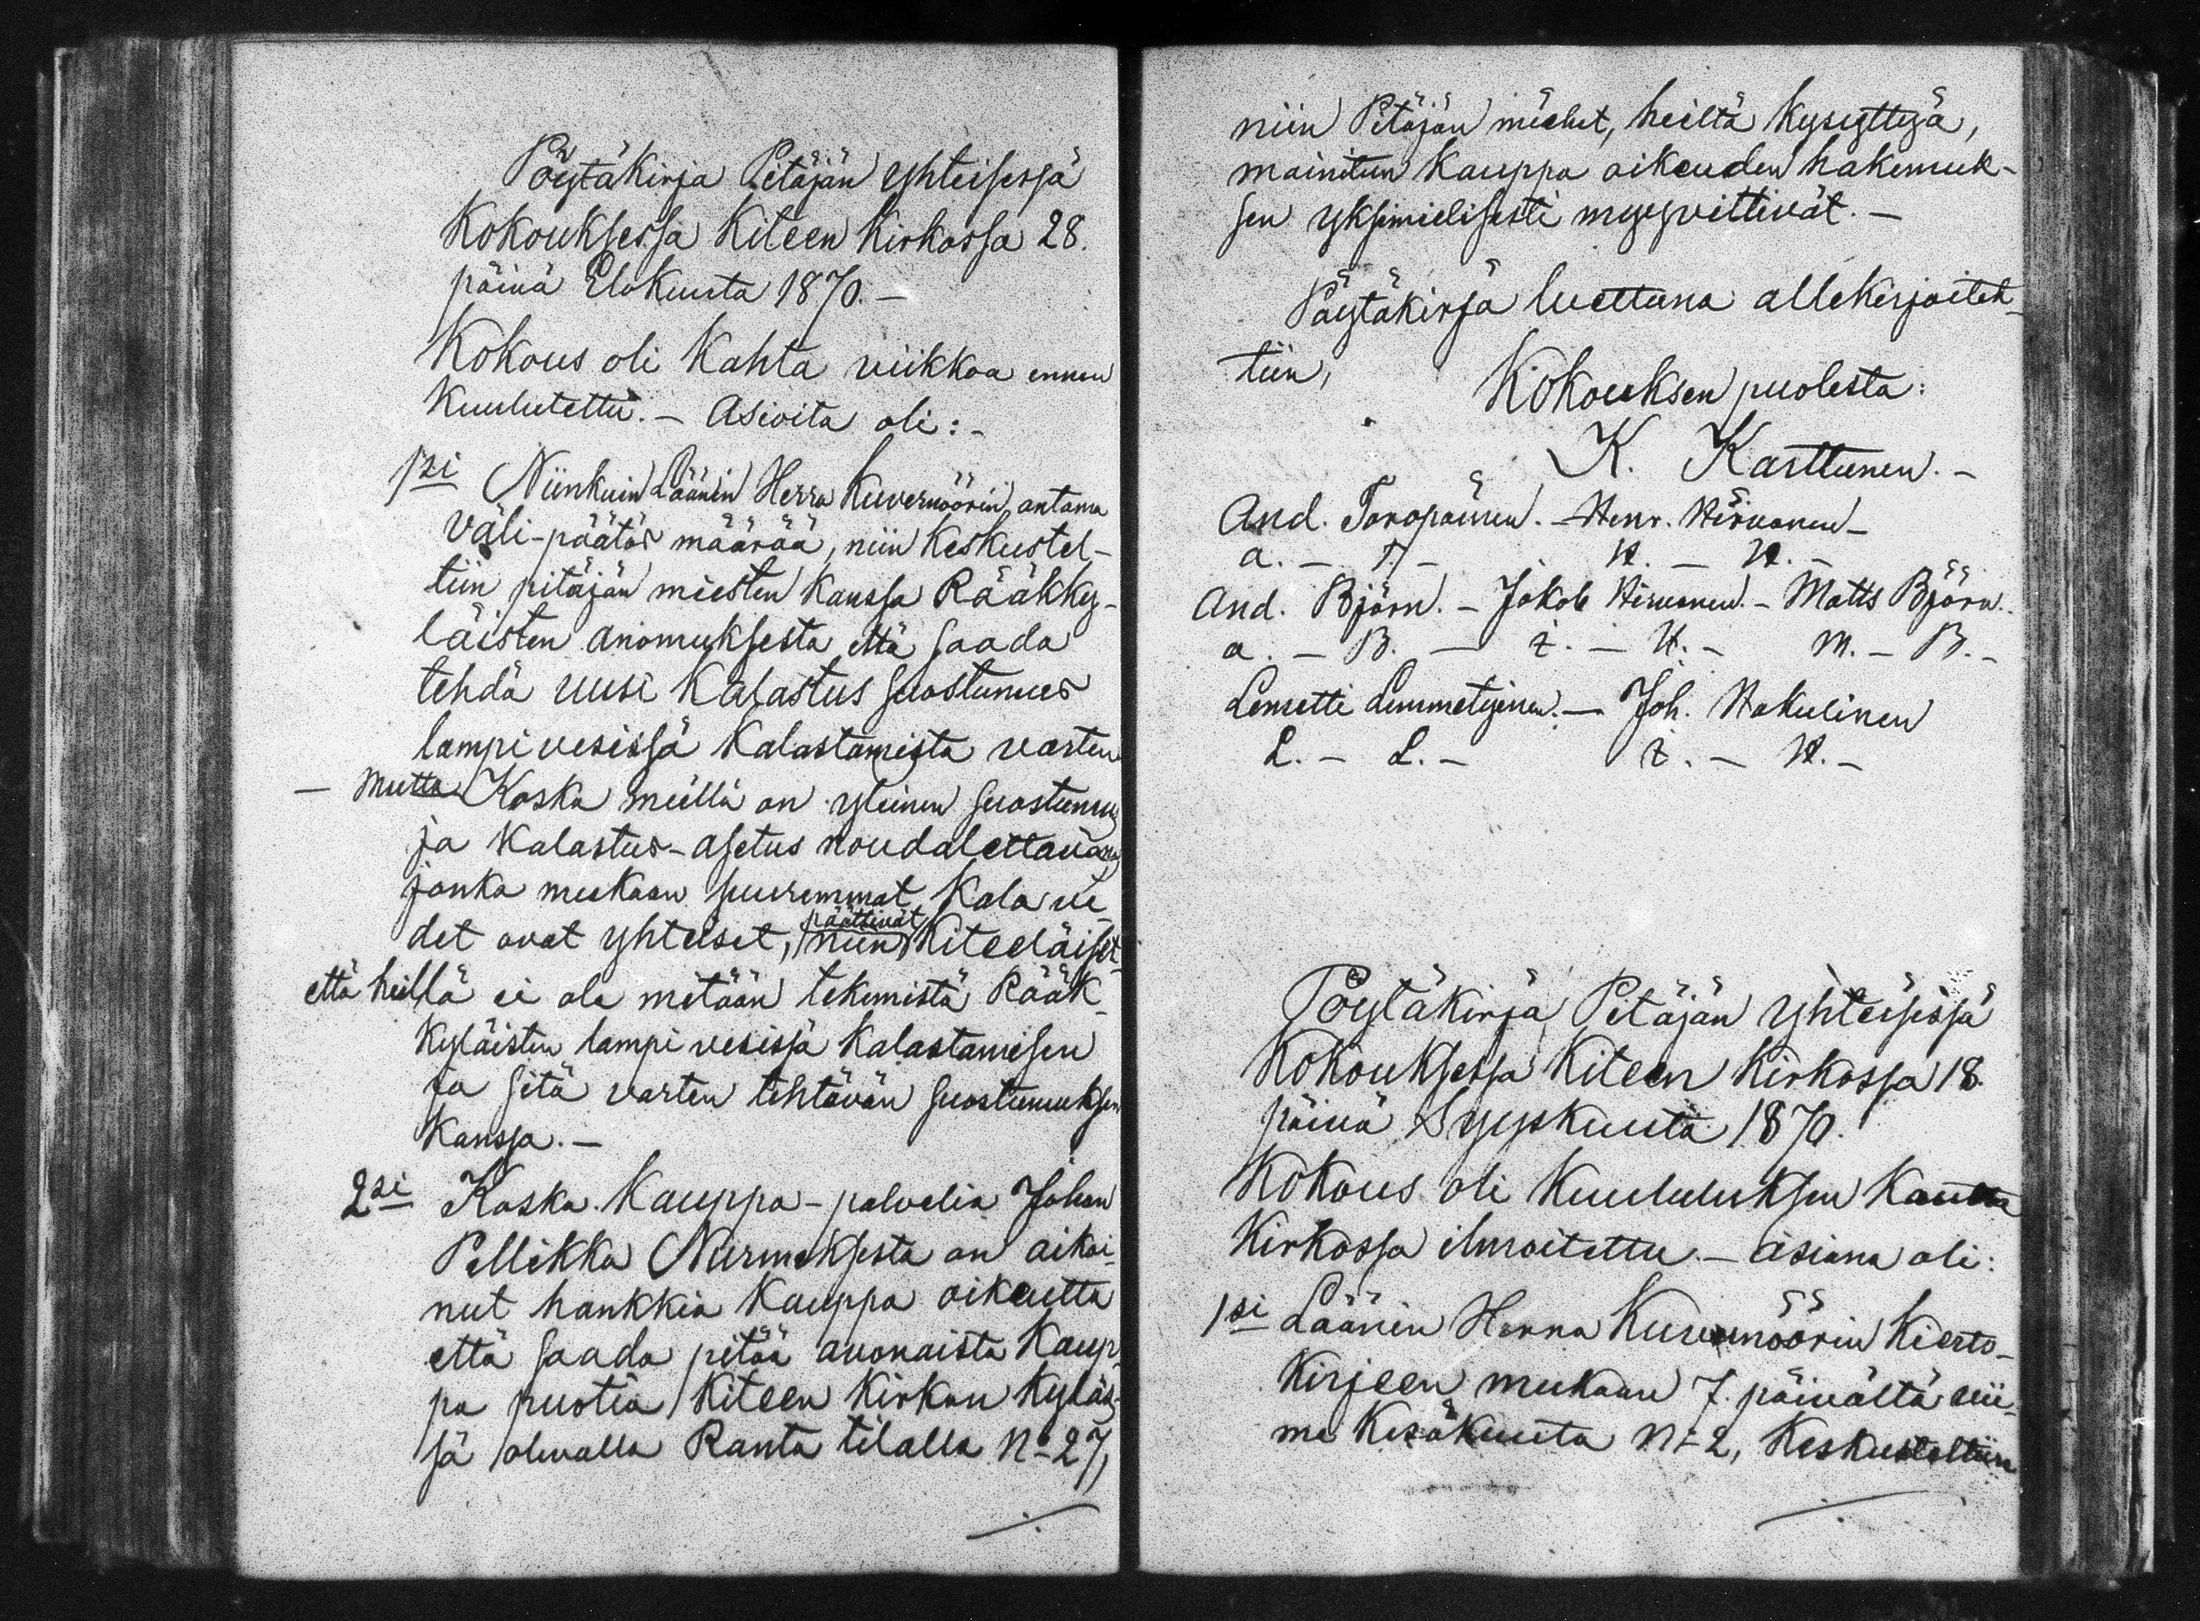 Pöytäkirja Pitäjän yhteisessä
Kokouksessa Kiteen Kirkossa 28.
päivä Elokuuta 1870.–
Kokous oli Kahta viikkoa ennen
Kuulutettu.– Asioita oli:–
1si Niinkuin Läänin Herra Kuvernöörin antama
väli-päätös määrää, niin Keskustel-
tiin pitäjän miesten kanssa Rääkky-
läisten anomuksesta että saada
tehdä uusi Kalastus suostumus
lampivesissä Kalastamista varten
– Mutta Koska meillä on yleinen suostumus
ja Kalastus-asetus noudatettavana
jonka mukaan suuremmat Kala ve-
det ovat yhteiset, niin päättivät Kiteeläiset
että heillä ei ole mitään tekemistä Rääk-
kyläisten lampi vesissä Kalastamisen
ja sitä varten tehtävän suostumuksen
Kanssa.–
2si Koska Kauppa-palvelia Johan
Pellikka Nurmeksesta on aikoi-
nut hankkia Kauppa oikeutta
että saada pitää avonaista Kaup-
pa puotia Kiteen Kirkon Kyläs-
sä olevalla Ranta tilalla No 27,
niin Pitäjän miehet, heiltä Kysyttyä,
mainitun Kauppa oikeuden hakemuk-
sen yksimielisesti myyvittivät.–
Pöytäkirja luettuna allekirjoitet-
tiin,
Kokouksen puolesta:
K. Karttunen.–
And. Toropainen.– Henr. Hirvonen–
A.– T.– H.– H.–
And. Björn.– Jakob Hirvonen.– Matts Björn.
A.– B.– I.– H.– M.– B.–
Lemetti Lemmetyinen.– Joh. Hakulinen
L.– L.– I.– H.–
Pöytäkirja Pitäjän yhteisessä
Kokouksessa Kiteen Kirkossa 18.
päivä Syyskuuta 1870.
Kokous oli Kuulutuksen Kautta
Kirkossa ilmoitettu.– Asiana oli:
1si Läänin Herra Kuvernöörin Kierto-
Kirjeen mukaan 7. päivältä vii-
me Kesäkuuta No 2, Keskusteltiin